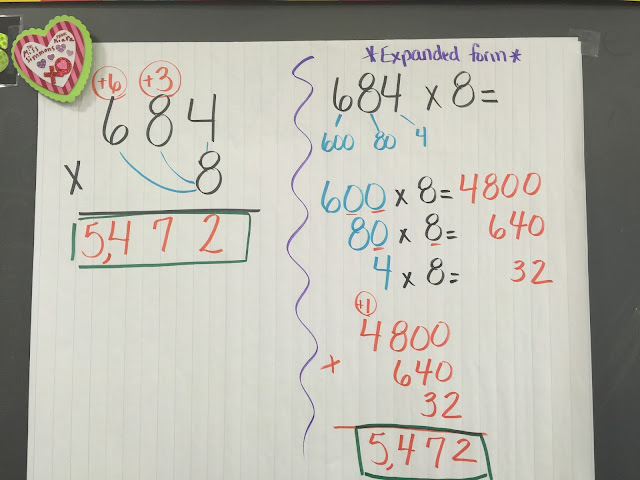 Miss
Simmons
+6 +3
684
x 8
5,472
*Expanded form*
684 x 8=
600 80 4
600 x 8= 4800
80 x 8= 640
4 x 8= 32
+1
4800
+ 640
32
5,472